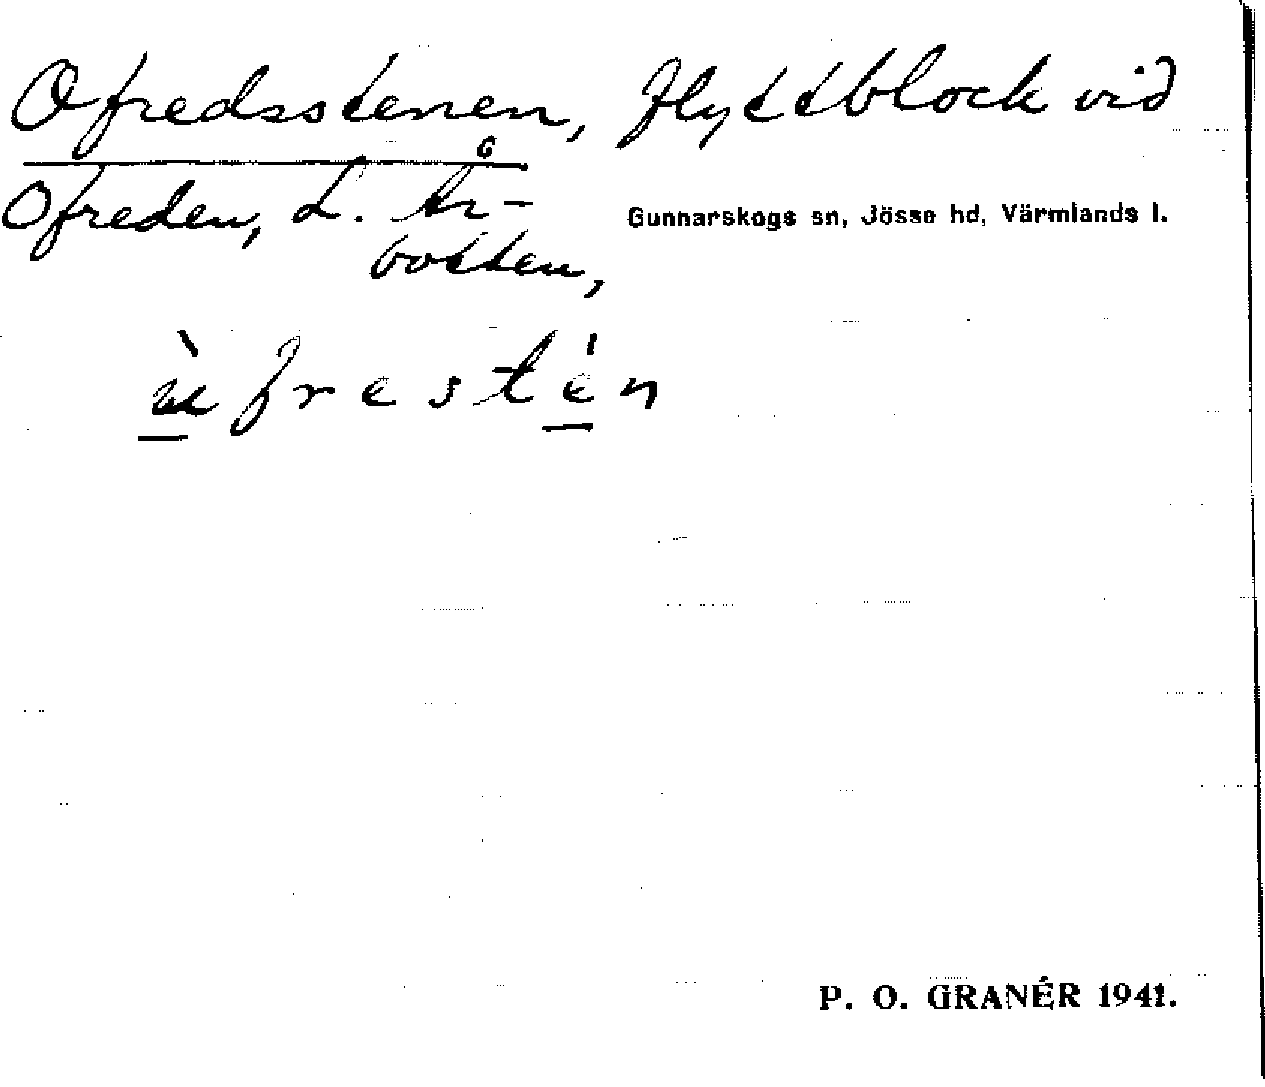 Ofredsstenen, flyttblock vid
Ofreden, L. År-
Gunnarskogs sn, Jösse hd, Värmlands l.
botten,
ù f r e s t é n
P. O. GRANÉR 1941.